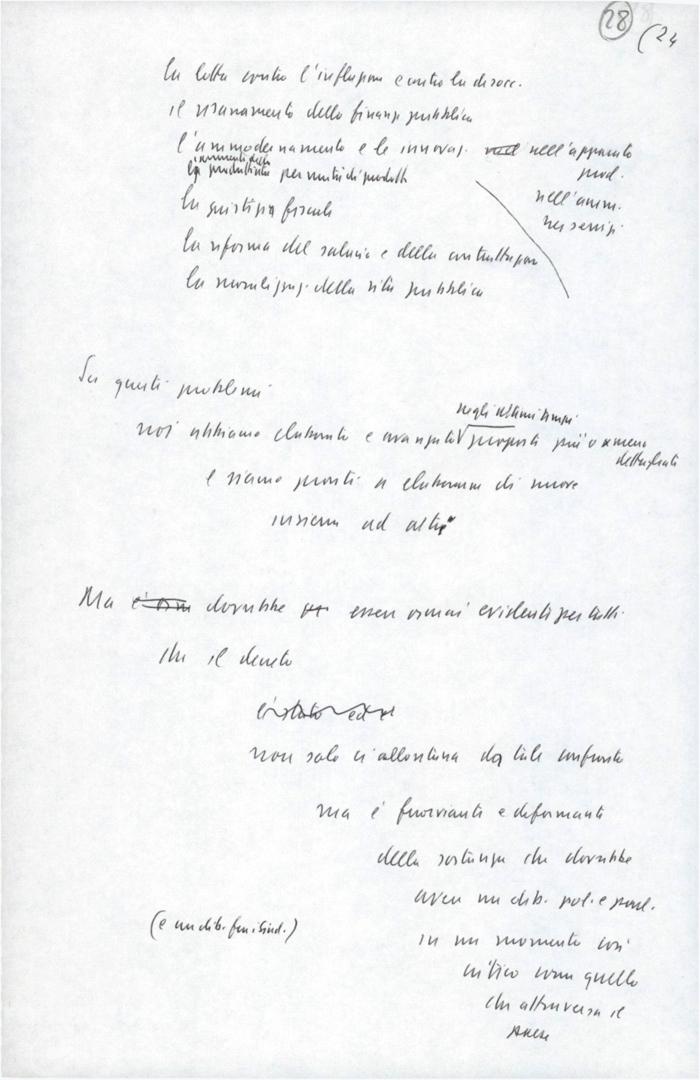 28
(24
la lotta contro l'inflazione e contro la disocc.
il risanamento della finanza pubblica
l'ammodernamento e le innovaz. nell'apparato
prod.
nell'amm.
nei servizi
la produttività per unità di prodotto
la giustizia fiscale
la riforma del salario e della contrattazione
la moralizzaz. della vita pubblica
Su questi problemi
negli ultimi tempi
noi abbiamo elaborato e avanzato proposte più o meno
dettagliate
e siamo pronti a elaborarne di nuove
insieme ad altri
Ma dovrebbe essere ormai evidente per tutti
che il decreto
è stato ed è
non solo ci allontana da tale confronto
ma è fuorviante e deformante
della sostanza che dovrebbe
avere un dib. pol. e parl.
(e un dib. fra i sind.)
in un momento così
critico come quello
che attraversa il
Paese